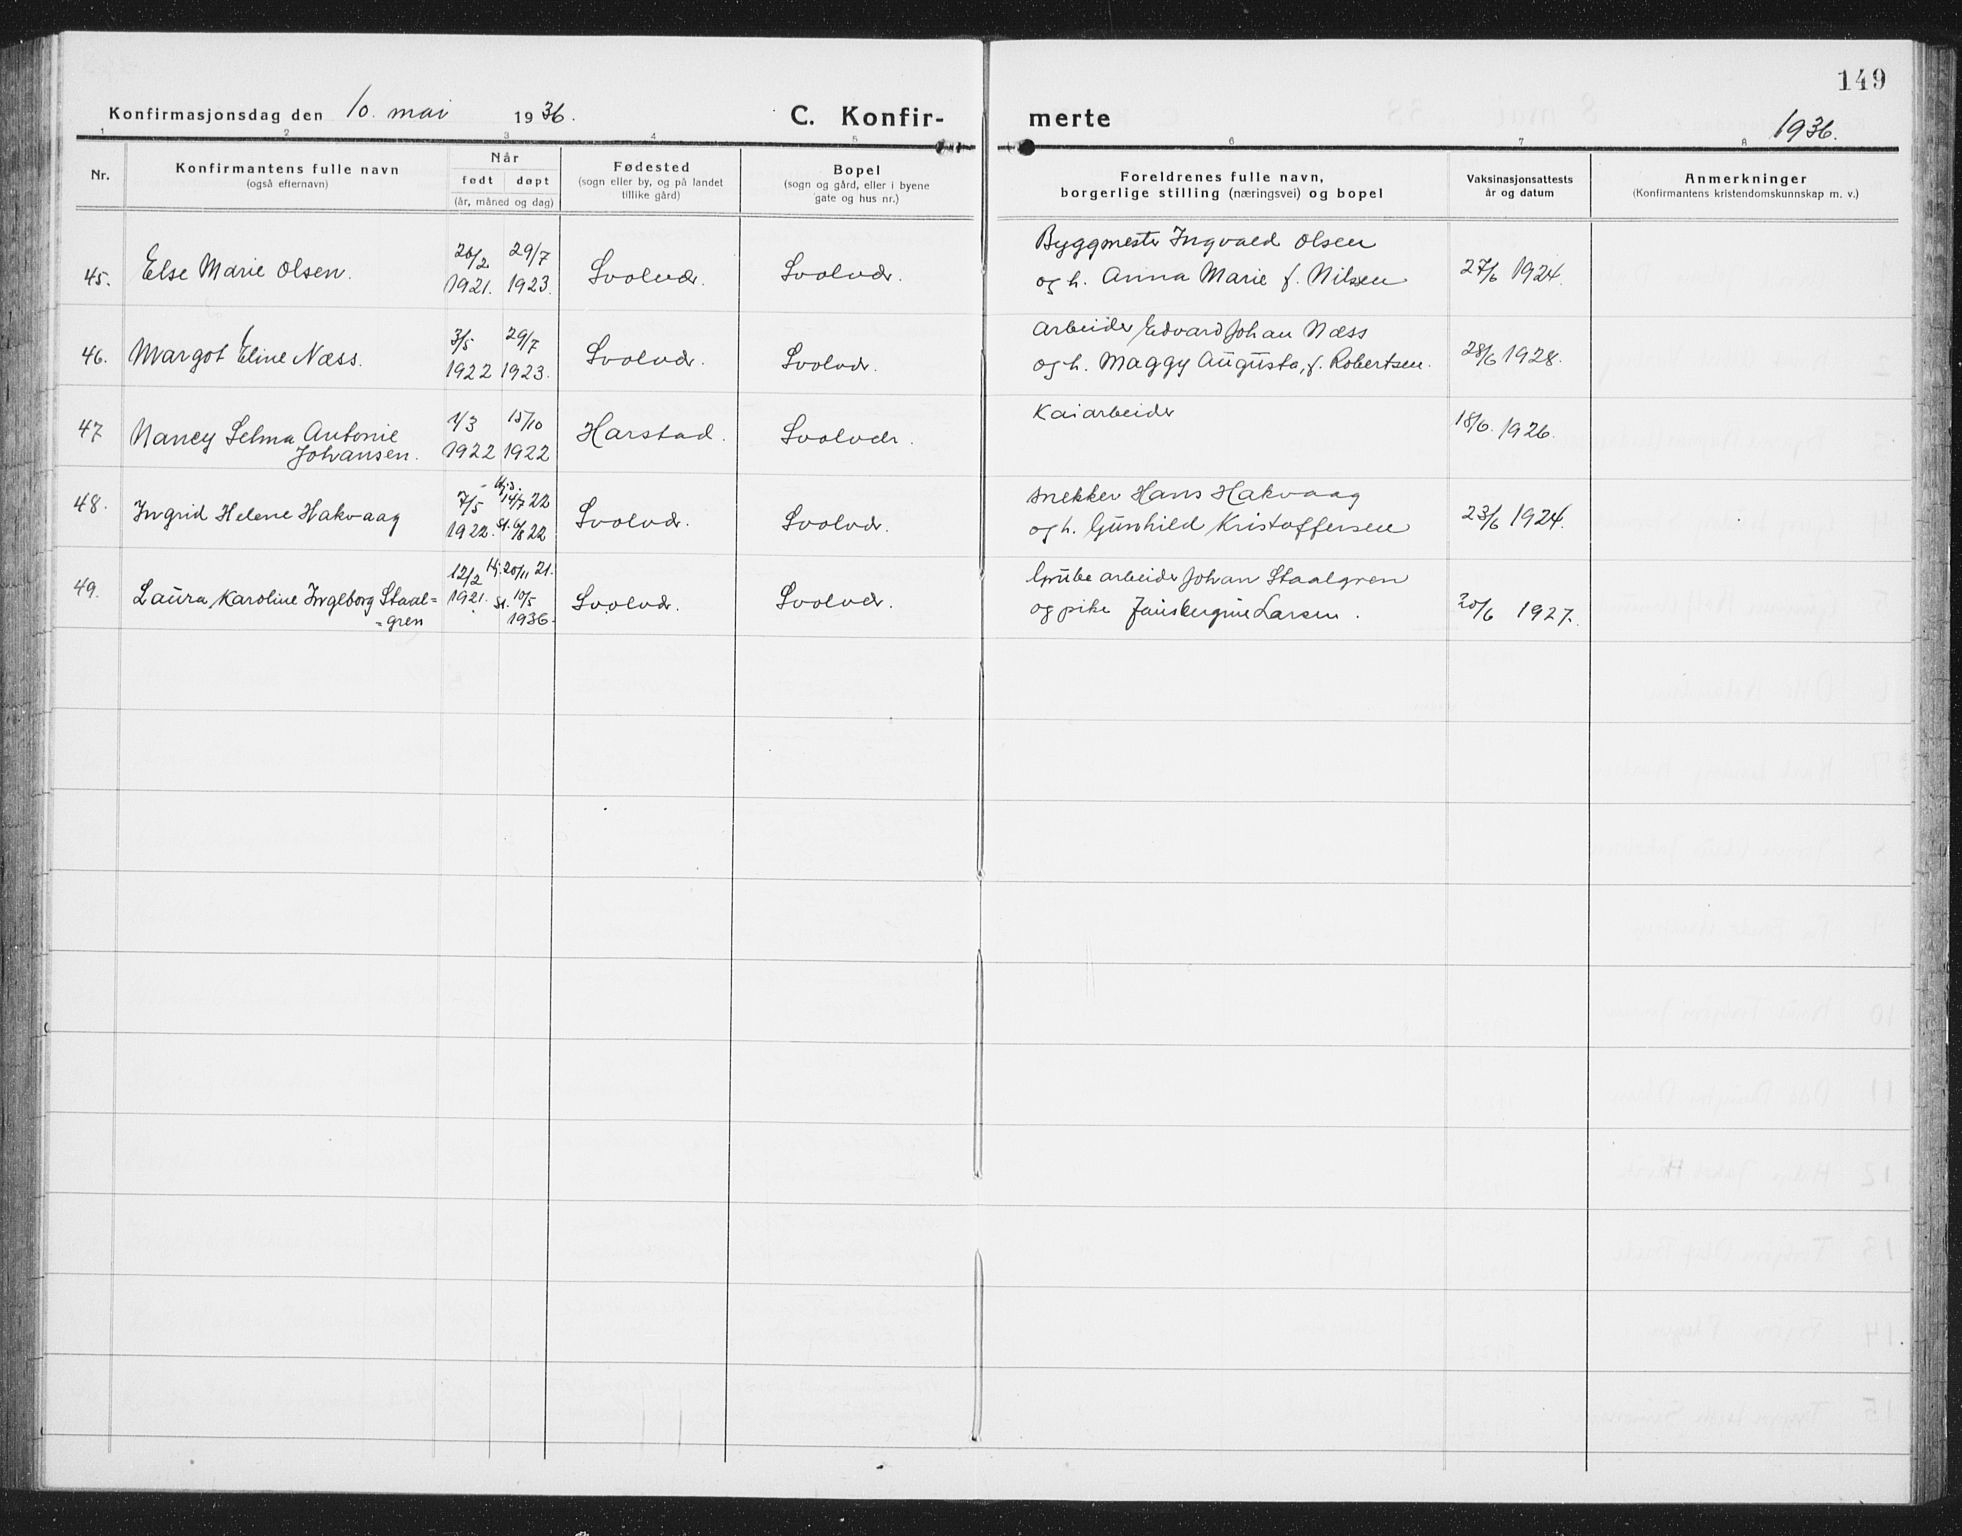 149
Konfirmasjonsdag den 10. mai 1936.
C. Konfir-
merte
1936.
1 2 3 4 5 6 7 8
Nr.
Konfirmantens fulle navn
(også efternavn)
Når
født døpt
(år, måned og dag)
Fødested
(sogn eller by, og på landet
tillike gård)
Bopel
(sogn og gård, eller i byene
gate og hus nr.)
Foreldrenes fulle navn,
borgerlige stilling (næringsvei) og bopel
Vaksinasjonsattests
år og datum
Anmerkninger
(Konfirmantens kristendomskunnskap m. v.)
45. Else Marie Olsen.
26/2 1921.
29/7 1923.
Svolvær.
Svolvær.
Byggmester Ingvald Olsen
og h. Anna Marie f. Nilsen
27/6 1924.
46. Margot Eline Næss.
3/5 1922
29/7 1923.
Svolvær.
Svolvær.
Arbeider Edvard Johan Næss
og h. Maggy Augusta, f. Robertsen.
28/6 1928.
47 Nancy Selma Antonie
Johansen.
1/3 1922
15/10 1922
Harstad.
Svolvær.
Kaiarbeider
18/6. 1926.
48. Ingrid Helene Hakvaag
7/5 1922.
Hj. 14/7 22
st. 6/8 22
Svolvær.
Svolvær.
Snekker Hans Hakvaag
og h. Gunhild Kristoffersen
23/6 1924.
49. Laura Karoline Ingeborg Staal=
=gren
12/2 1921.
Hj. 20/11 21.
St. 10/5
1936.
Svolvær.
Svolvær.
Grubearbeider Johan Staalgren
og pike Larsen.
20/6 1927.